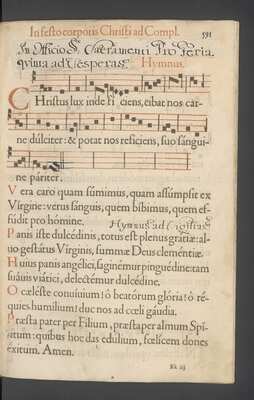 In festo corporis Christi ad Compl. 591
In Officio S. Sacramenti Pro Feria
quinta ad Vesperas Hymnus.
CHristus lux indefi ciens, cibat nos car-
ne dúlciter: & potat nos reficiens, suo sángui-
ne páriter.
Vera caro quam súmimus, quam assúmpsit ex
Vírgine: verus sánguis, quem bíbimus, quem ef-
fúdit pro hómine. Hymnus ad
Panis iste dulcédinis, totus est plenus grátiæ: al-
uo gestátus Vírginis, summæ Deus cleméntiæ.
Huius panis angélici, saginémur pinguédine: tam
suáuis viátici, delectémur dulcédine.
O cæléste conuiuium! ó beatórum glória! ó ré-
quies humílium! duc nos ad cœli gáudia.
Præsta pater per Filium, præsta per almum Spí-
ritum: quibus hoc das edúlium, fœlicem dones
exitum. Amen.